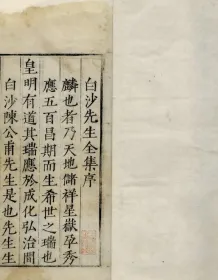 白沙先生全集序
麟也者乃天地儲祥星嶽孕秀
應五百昌期而生希世之瑞也
皇明有道其瑞應於成化弘治間
白沙陳公甫先生是也先生生